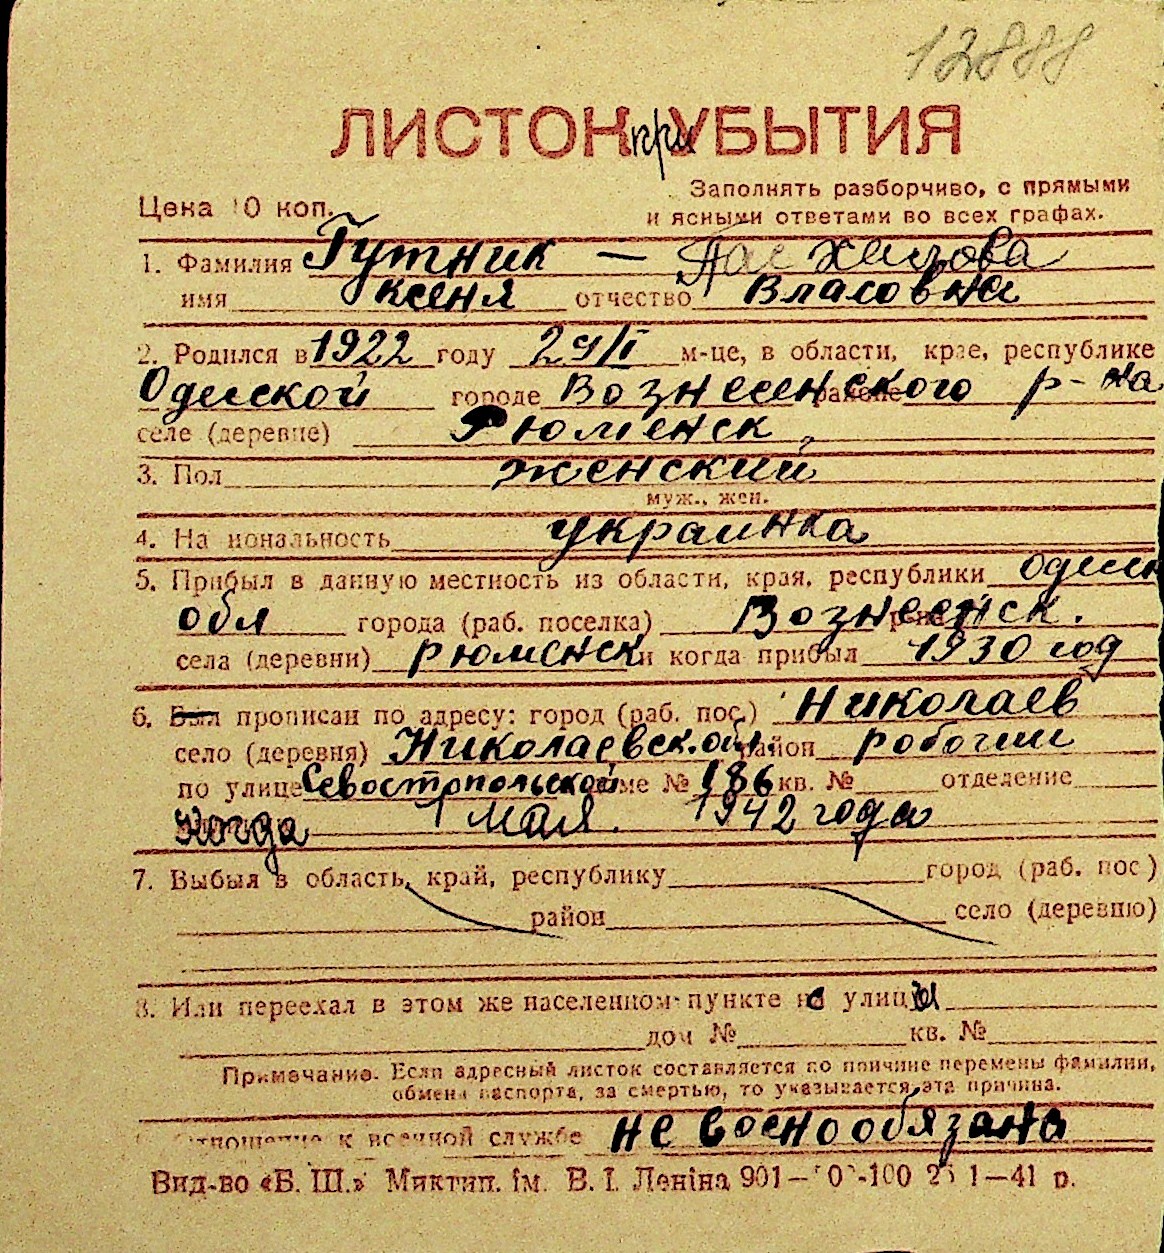 12888
ЛИСТОК при УБЫТИЯ
Заполнять разборчиво, с прямыми
Цена 10 коп. и ясными ответами во всех графах.
1. Фамилия Гутник — Пасхалова
имя Ксеня отчество Власовна
2. Родился в 1922 году 29/I м-це, в области, крае, республике
Одесской городе Вознесенского районе р-на
селе (деревне) Рюменск
3. Пол женский
муж., жен.
4. Национальность украинка
5. Прибыл в данную местность из области, края, республики Одесск
обл города (раб. поселка) Вознесенск.
села (деревни) рюменск и когда прибыл 1930 год
6. Был прописан по адресу: город (раб. пос.) Николаев
село (деревня) Николаевск. обл. район робочий
по улице Севостопольской доме № 186 кв. № отделение
когда 1 мая. 1942 года
7. Выбыл в область, край, республику город (раб. пос)
район село (деревню)
8. Или переехал в этом же населенном пункте с улицы
дом № кв. №
Примечание. Если адресный листок составляется по причине перемены фамилии,
обмена паспорта, за смертью, то указывается эта причина.
Отношение к военной службе не военообязана
Вид-во «Б. Ш.» Миктип. ім. В. І. Леніна 901— 1—41 р.